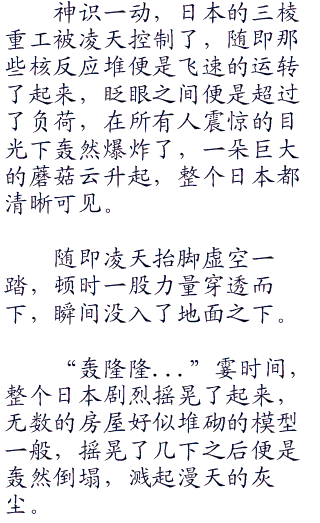 神识一动，日本的三棱
重工被凌天控制了，随即那
些核反应堆便是飞速的运转
了起来，眨眼之间便是超过
了负荷，在所有人震惊的目
光下轰然爆炸了，一朵巨大
的蘑菇云升起，整个日本都
清晰可见。
随即凌天抬脚虚空一
踏，顿时一股力量穿透而
下，瞬间没入了地面之下。
“轰隆隆...”霎时间，
整个日本剧烈摇晃了起来，
无数的房屋好似堆砌的模型
一般，摇晃了几下之后便是
轰然倒塌，溅起漫天的灰
尘。